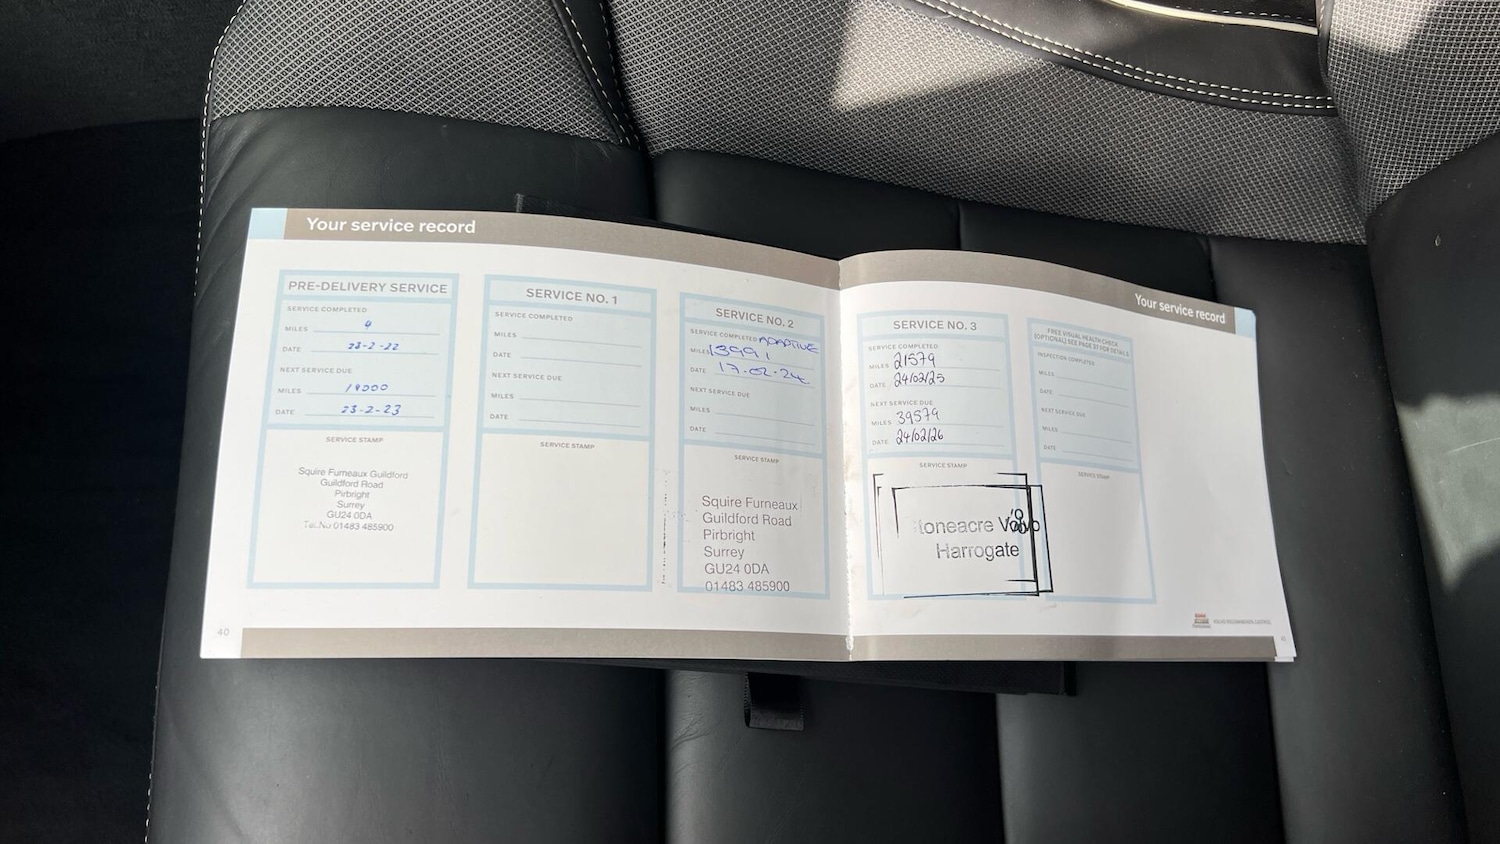 Your service record
PRE-DELIVERY SERVICE
SERVICE COMPLETED
MILES 4
DATE 23-2-22
NEXT SERVICE DUE
MILES
DATE 23-2-23
SERVICE STAMP
Squire Furneaux Guildford
Guildford Road
Pirbright
Surrey
GU24 0DA
Tel.No 01483 485900
SERVICE NO. 1
SERVICE COMPLETED
MILES
DATE
NEXT SERVICE DUE
MILES
DATE
SERVICE STAMP
SERVICE NO. 2
SERVICE COMPLETED ADAPTIVE
MILES 13991
DATE 17.02.24
NEXT SERVICE DUE
MILES
DATE
SERVICE STAMP
Squire Furneaux
Guildford Road
Pirbright
Surrey
GU24 0DA
01483 485900
40
Your service record
SERVICE NO. 3
SERVICE COMPLETED
MILES 21579
DATE 24/02/25
NEXT SERVICE DUE
MILES 39579
DATE 24/02/26
SERVICE STAMP
toneacre Volvo
Harrogate
FREE VISUAL HEALTH CHECK
(OPTIONAL) SEE PAGE 37 FOR DETAILS
INSPECTION COMPLETED
MILES
DATE
NEXT SERVICE DUE
MILES
DATE
SERVICE STAMP
VOLVO RECOMMENDS CASTROL